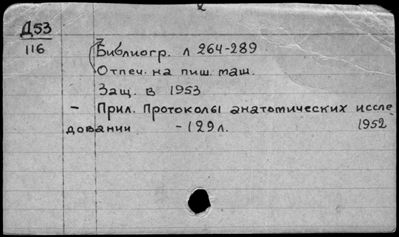 Д53
116
Библиогр. л 264-289
Отпеч. на пиш. маш.
Защ. в 1953
- Прил. Протоколы анатомических иссле
довании - 129 л. 1952